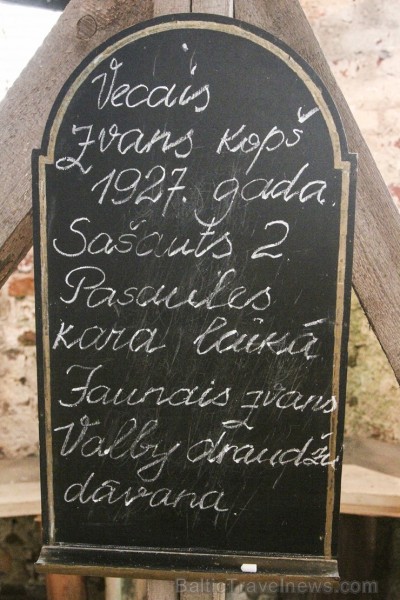 Vecais
zvans kopš
1927. gada.
Sašauts 2.
Pasaules
kara laikā
Jaunais zvans
Valby draudžu
dāvana.
BalticTravelnews.com